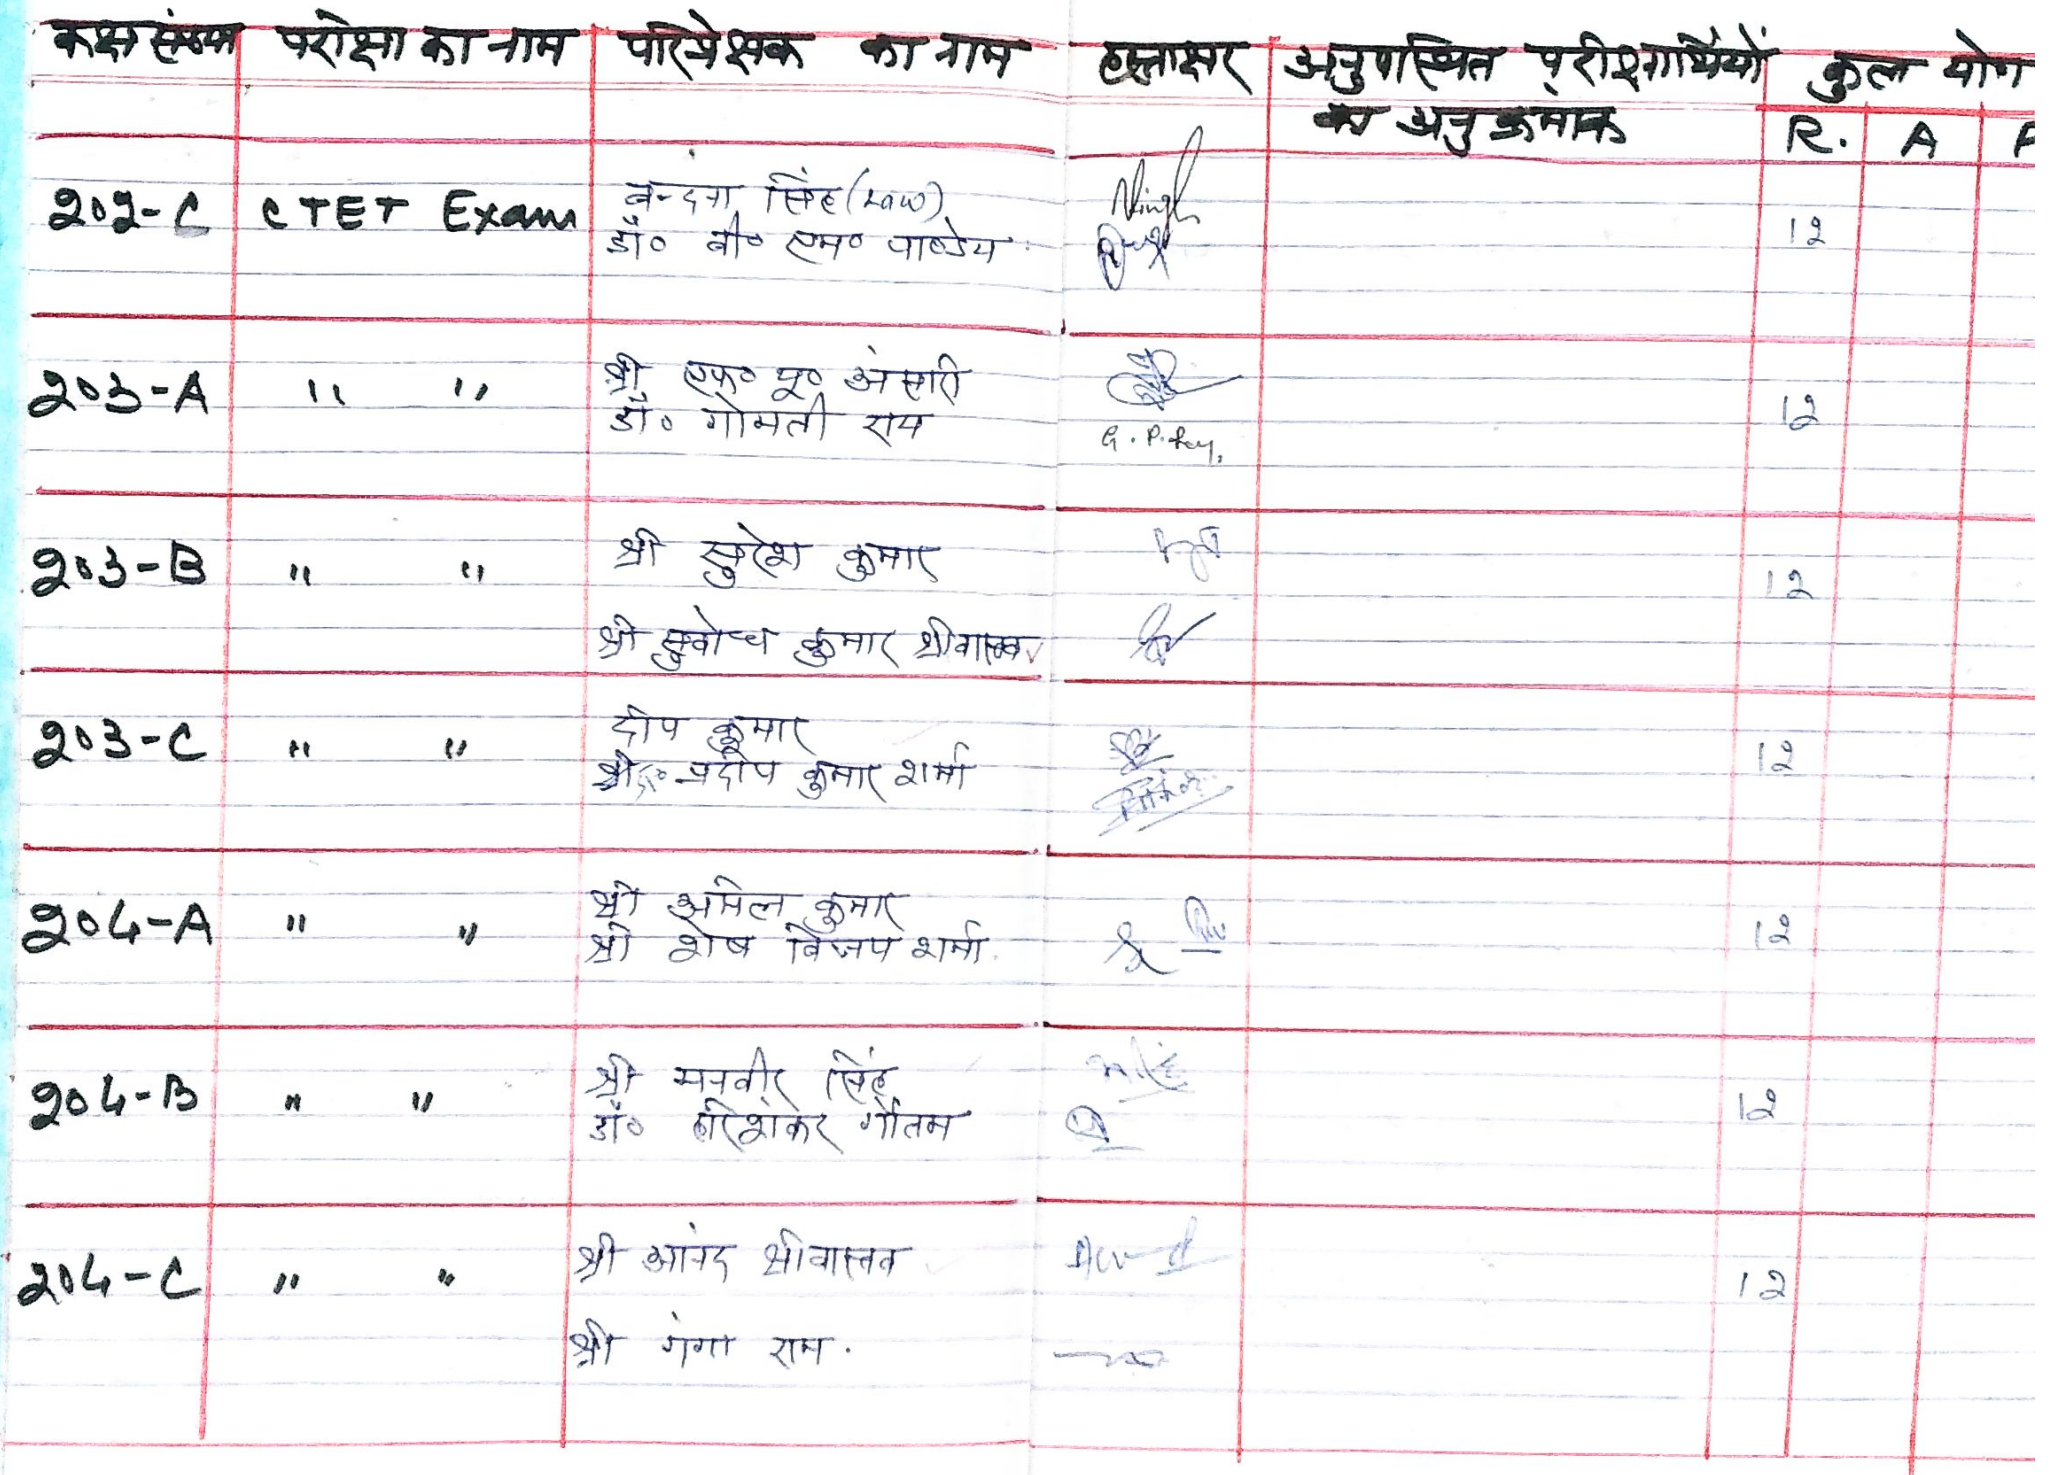 कक्ष संख्या परीक्षा का नाम परिप्रेक्षक का नाम हस्ताक्षर अनुपस्थित परीक्षार्थियों कुल योग
का अनुक्रमांक R. A P
202-C CTET Exam वन्दना सिंह (Law) 12
डॉ० वी० एम० पाण्डेय
203-A " " श्री एफ० यू० अंसारी 12
डॉ० गोमती राय G. P. Ray.
203-B " " श्री सुरेश कुमार 12
श्री सुबोध कुमार श्रीवास्तव
203-C " " दीप कुमार 12
प्रदीप कुमार शर्मा
204-A " " श्री अमिल कुमार 12
श्री शेष विजय शर्मा.
204-B " " श्री मनवीर सिंह 12
डॉ० हरिशंकर गौतम
204-C " " श्री आनंद श्रीवास्तव 12
श्री गंगा राम.